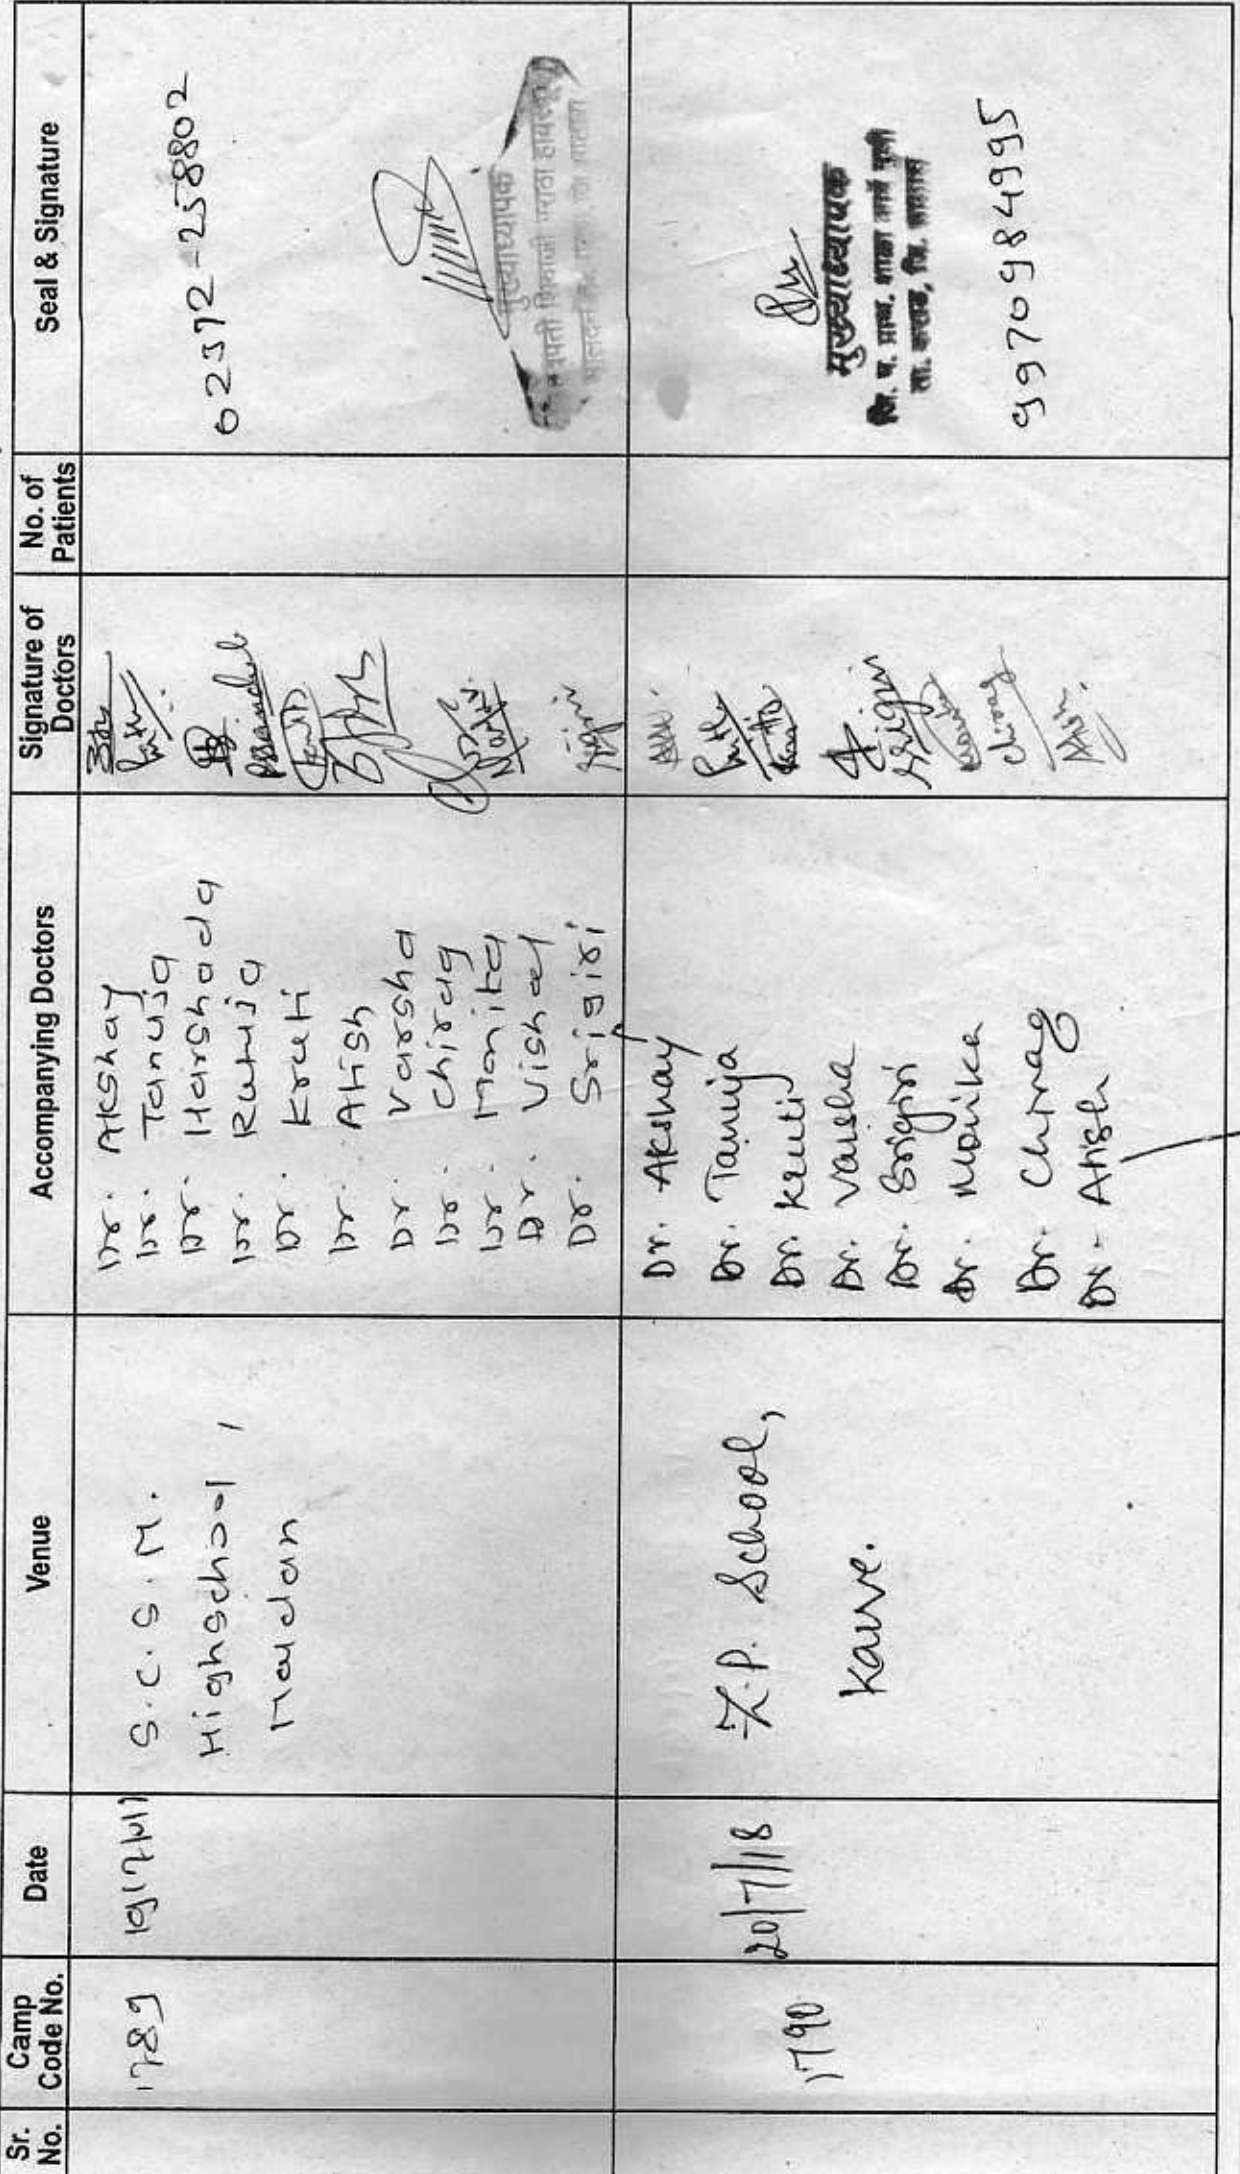 Sr. No.
Camp Code No.
Date
Venue
Accompanying Doctors
Signature of Doctors
No. of Patients
Seal & Signature
1789
S.C.S.M.
Highschool,
Maldan
Dr. Akshay
Dr. Tanuja
Dr. Harshada
Dr. Rutuja
Dr. Kruti
Dr. Atish
Dr. Varsha
Dr. Chirag
Dr. Monika
Dr. Vishal
Dr. Srigiri
02372-258802
मुख्याध्यापक
1790
20/7/18
Z.P. School,
Karve.
Dr. Akshay
Dr. Tanuja
Dr. Kruti
Dr. Varsha
Dr. Srigiri
Dr. Monika
Dr. Chirag
Dr. Atish
Srigiri
Chirag
मुख्याध्यापक
जि. प. प्राथ. शाळा कार्वे
ता. कराड, जि. सातारा
9970984995